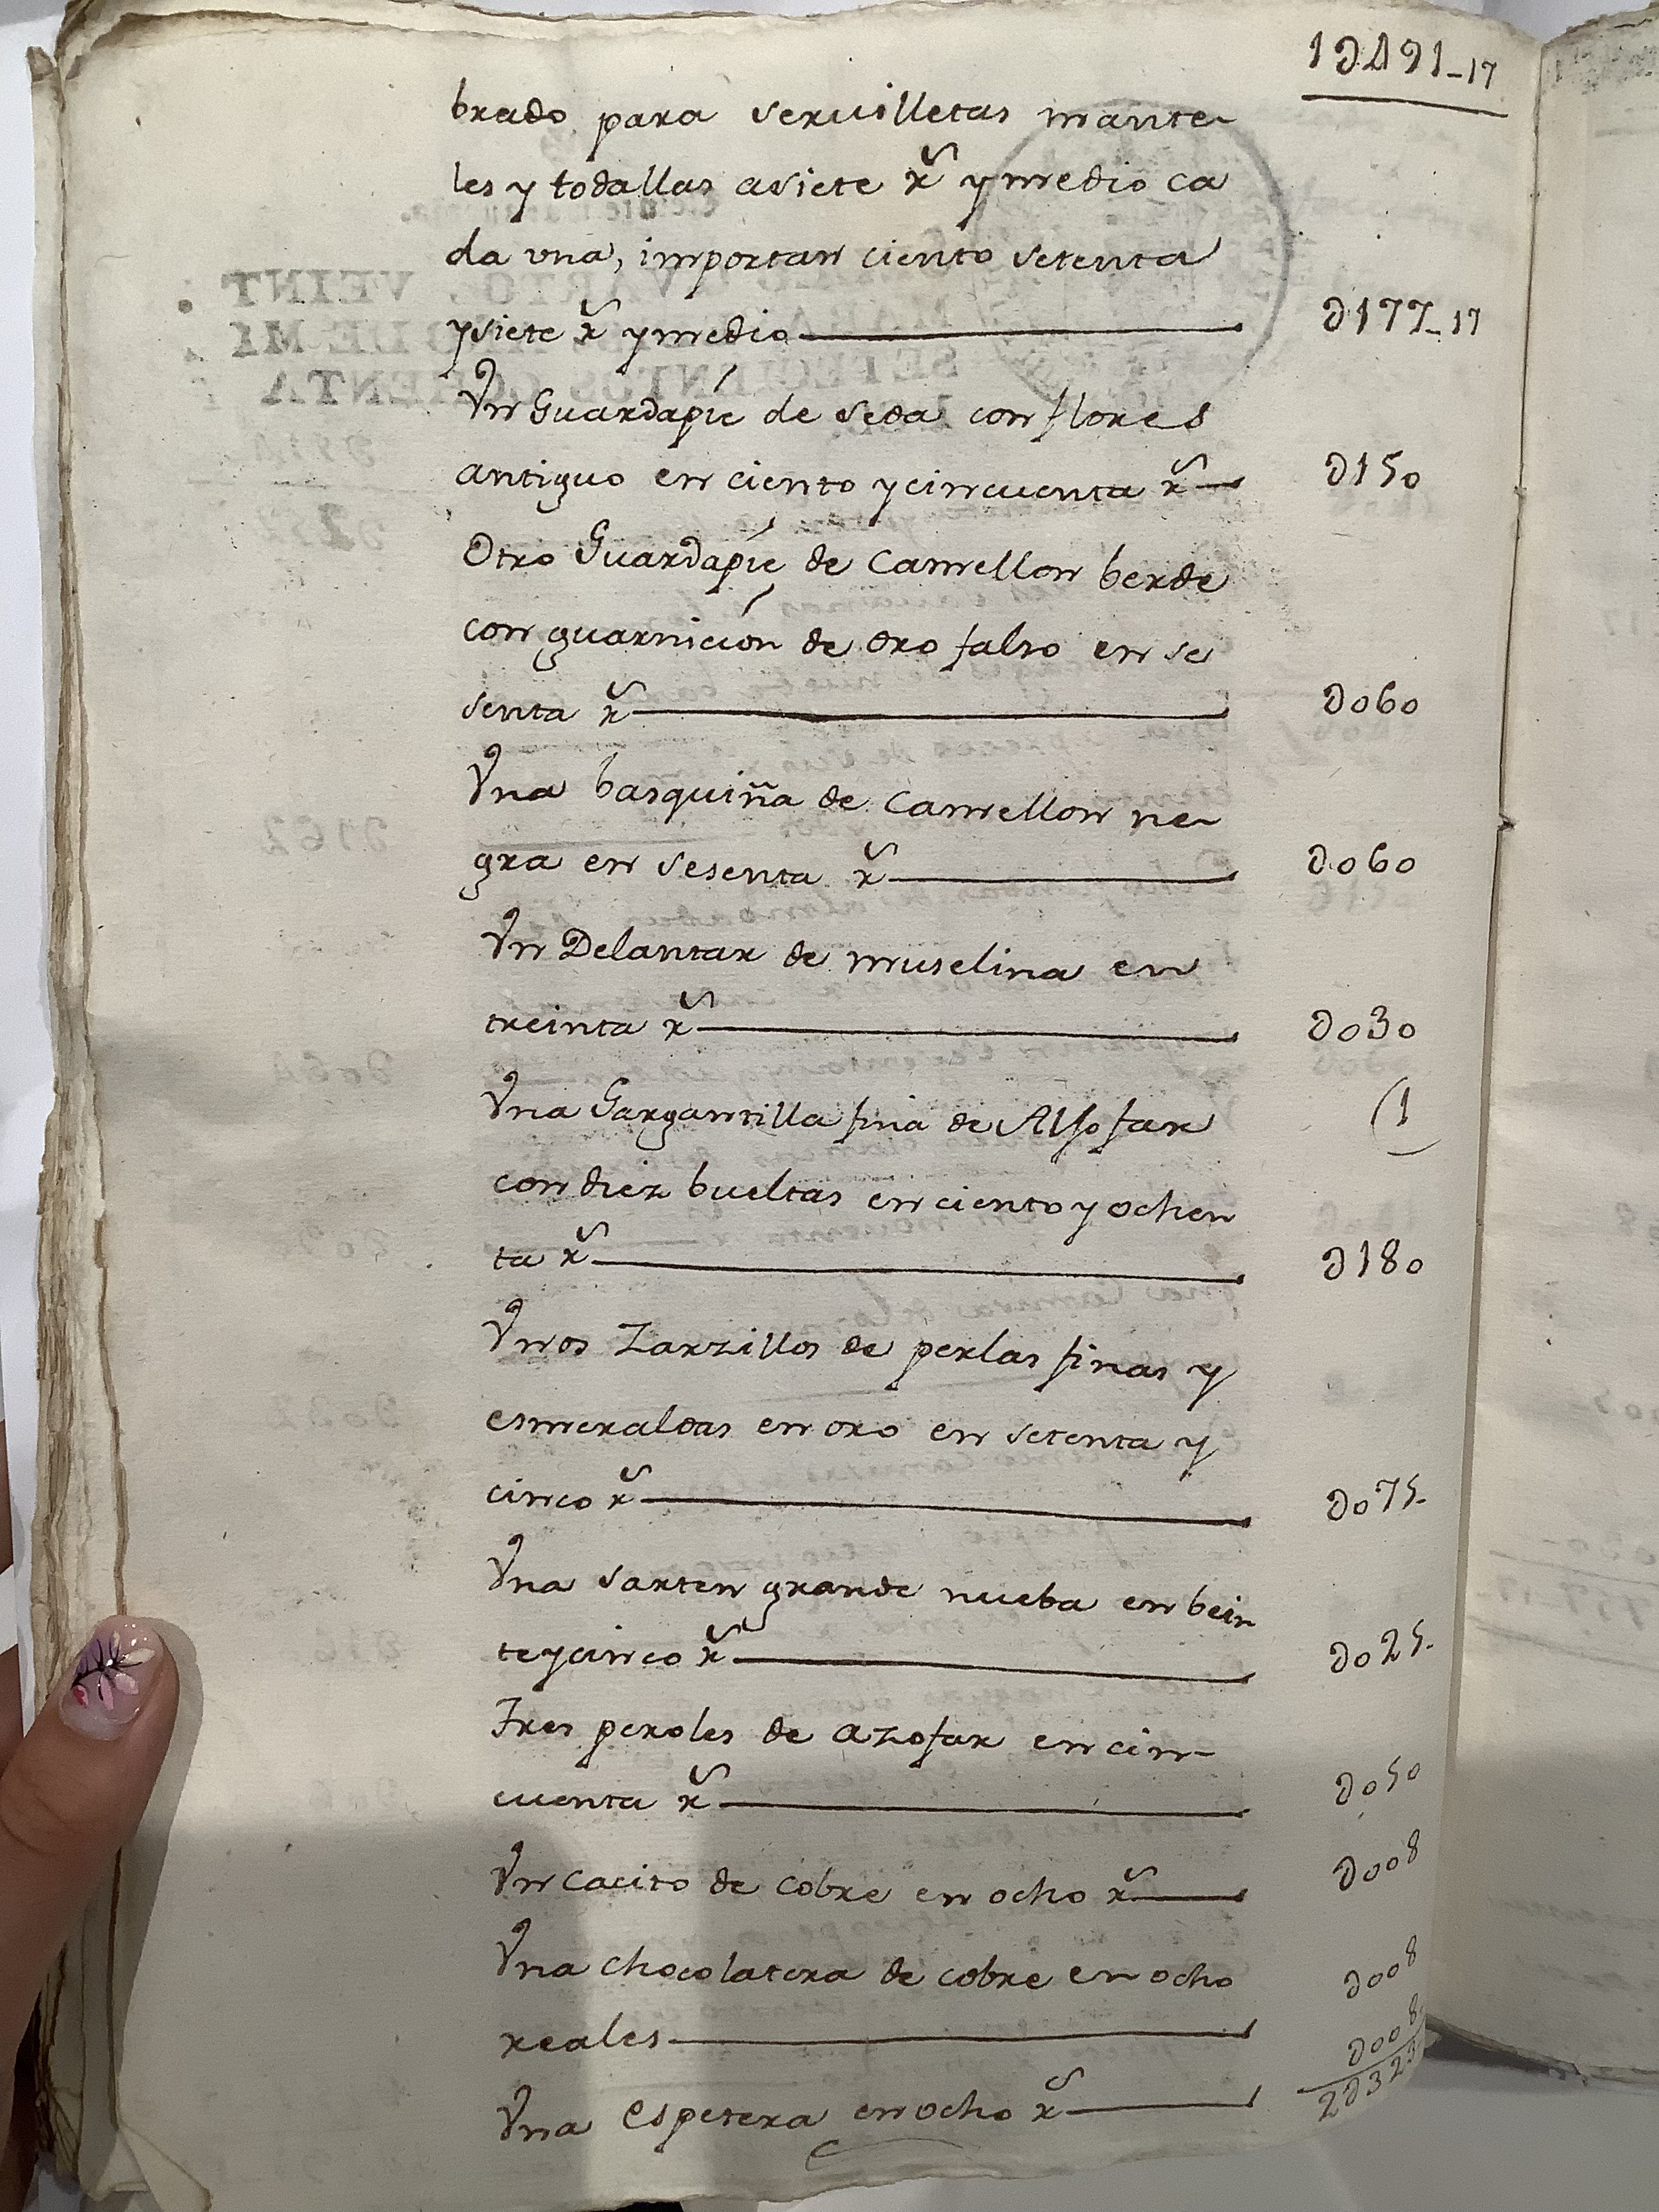 1D491-17
brado para seruilletas mante-
les y todallas asiete rs ymedio ca
da vna, importan ciento setenta
ysiete rs ymedio D177-17
Vn Guardapíe de seda con flores
antiguo en ciento ycincuenta rs D150
Otro Guardapíe de Camellon berde
con guarnición de oro falso en se
senta rs D060
Vna basquiña de Camellon ne-
gra en sesenta rs D060
Vn Delantar de muselina en
treinta rs D030
Vna Gargantilla fina de Aljofar (1
con diez bueltas en ciento y ochen
ta rs D180
Vnos Zarzillos de perlas finas y
esmeraldas en oro en setenta y
cinco rs D075-
Vna sarten grande nueba en bein
teycinco rs D025-
Tres peroles de azofar en cin-
cuenta rs D050
Vn Cacito de cobre en ocho rs D008
Vna chocolatera de cobre en ocho
reales D008
Vna Espetera en ocho rs D008
2D323